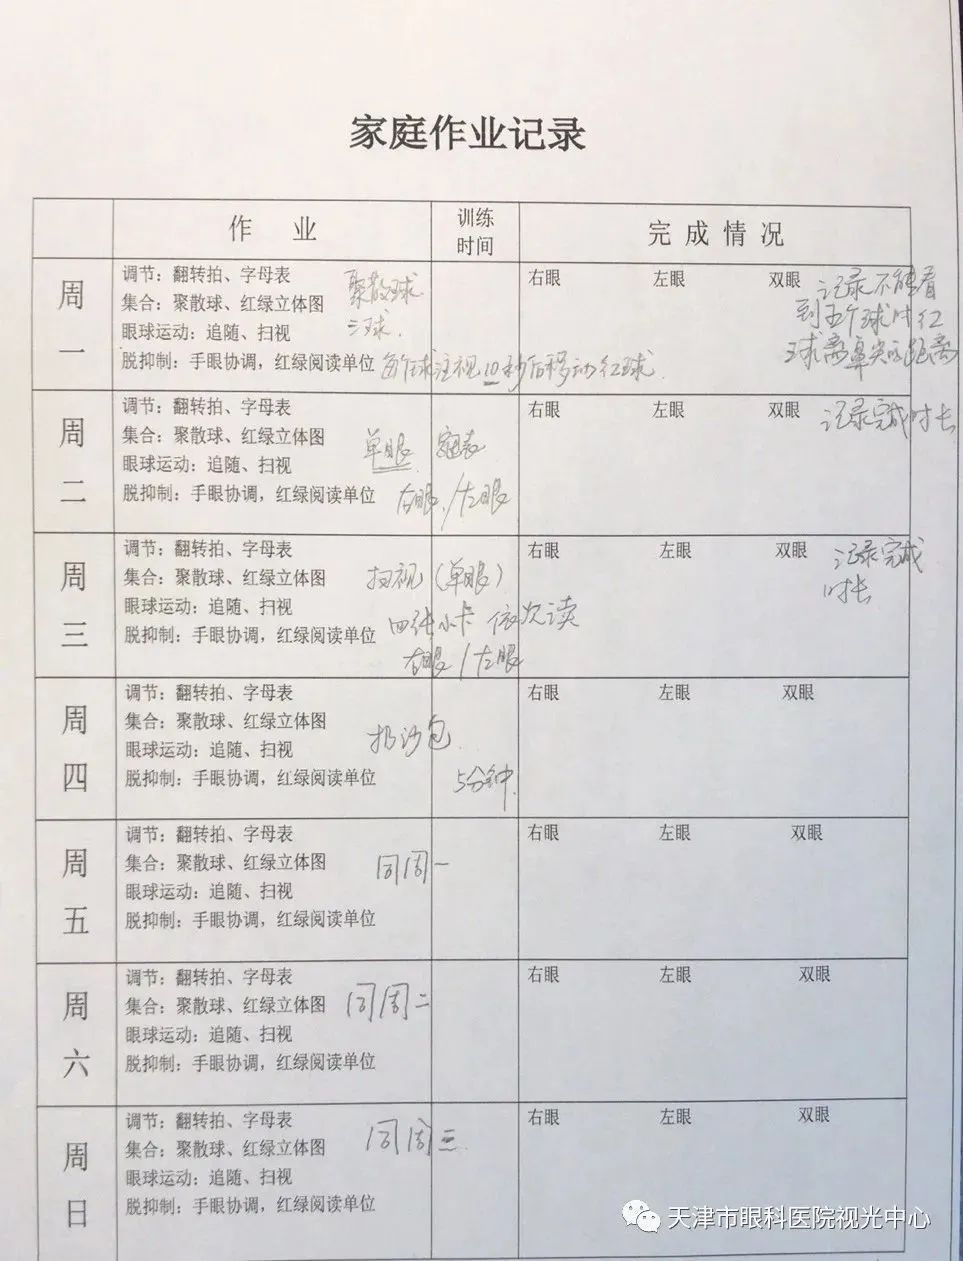 家庭作业记录
作 业
训练
时间
完成情况
周一
调节：翻转拍、字母表
集合：聚散球、红绿立体图
眼球运动：追随、扫视
脱抑制：手眼协调，红绿阅读单位
聚散球
三球.
每个球注视10秒后移动红球.
右眼 左眼 双眼
记录不能看
到五个球时红
球离鼻尖的距离
周二
调节：翻转拍、字母表
集合：聚散球、红绿立体图
眼球运动：追随、扫视
脱抑制：手眼协调，红绿阅读单位
单眼
右眼/左眼
右眼 左眼 双眼
记录完成时长
周三
调节：翻转拍、字母表
集合：聚散球、红绿立体图
眼球运动：追随、扫视
脱抑制：手眼协调，红绿阅读单位
扫视（单眼）
四张小卡 依次读
右眼/左眼
右眼 左眼 双眼
记录完成
时长
周四
调节：翻转拍、字母表
集合：聚散球、红绿立体图
眼球运动：追随、扫视
脱抑制：手眼协调，红绿阅读单位
扔沙包
5分钟.
右眼 左眼 双眼
周五
调节：翻转拍、字母表
集合：聚散球、红绿立体图
眼球运动：追随、扫视
脱抑制：手眼协调，红绿阅读单位
同周一
右眼 左眼 双眼
周六
调节：翻转拍、字母表
集合：聚散球、红绿立体图
眼球运动：追随、扫视
脱抑制：手眼协调，红绿阅读单位
同周二
右眼 左眼 双眼
周日
调节：翻转拍、字母表
集合：聚散球、红绿立体图
眼球运动：追随、扫视
脱抑制：手眼协调，红绿阅读单位
同周三.
右眼 左眼 双眼
天津市眼科医院视光中心